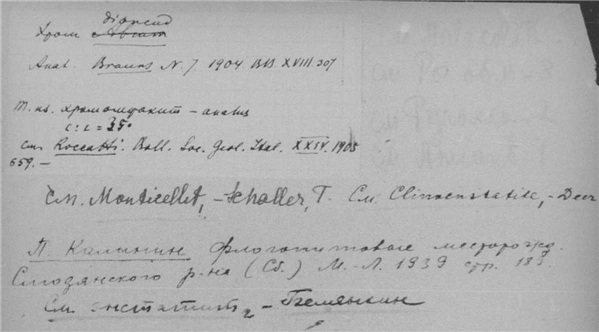 диопсид
Хром
Anal. Brauns N. J. 1904 BB XVIII. 307
Т. наз. хромдиопсит – analys
c : c = 35°
см. Roccati. Boll. Soc. Geol. Ital. XXIV. 1905
659. –
См. Monticellit, – Schaller, Т. См. Clinoenstatite, – Deer
П. Калинин. Флогопитовые месторожд.
Слюдянского р-на (Сб.) М.-Л. 1939 стр. 183.
См. энстатит –